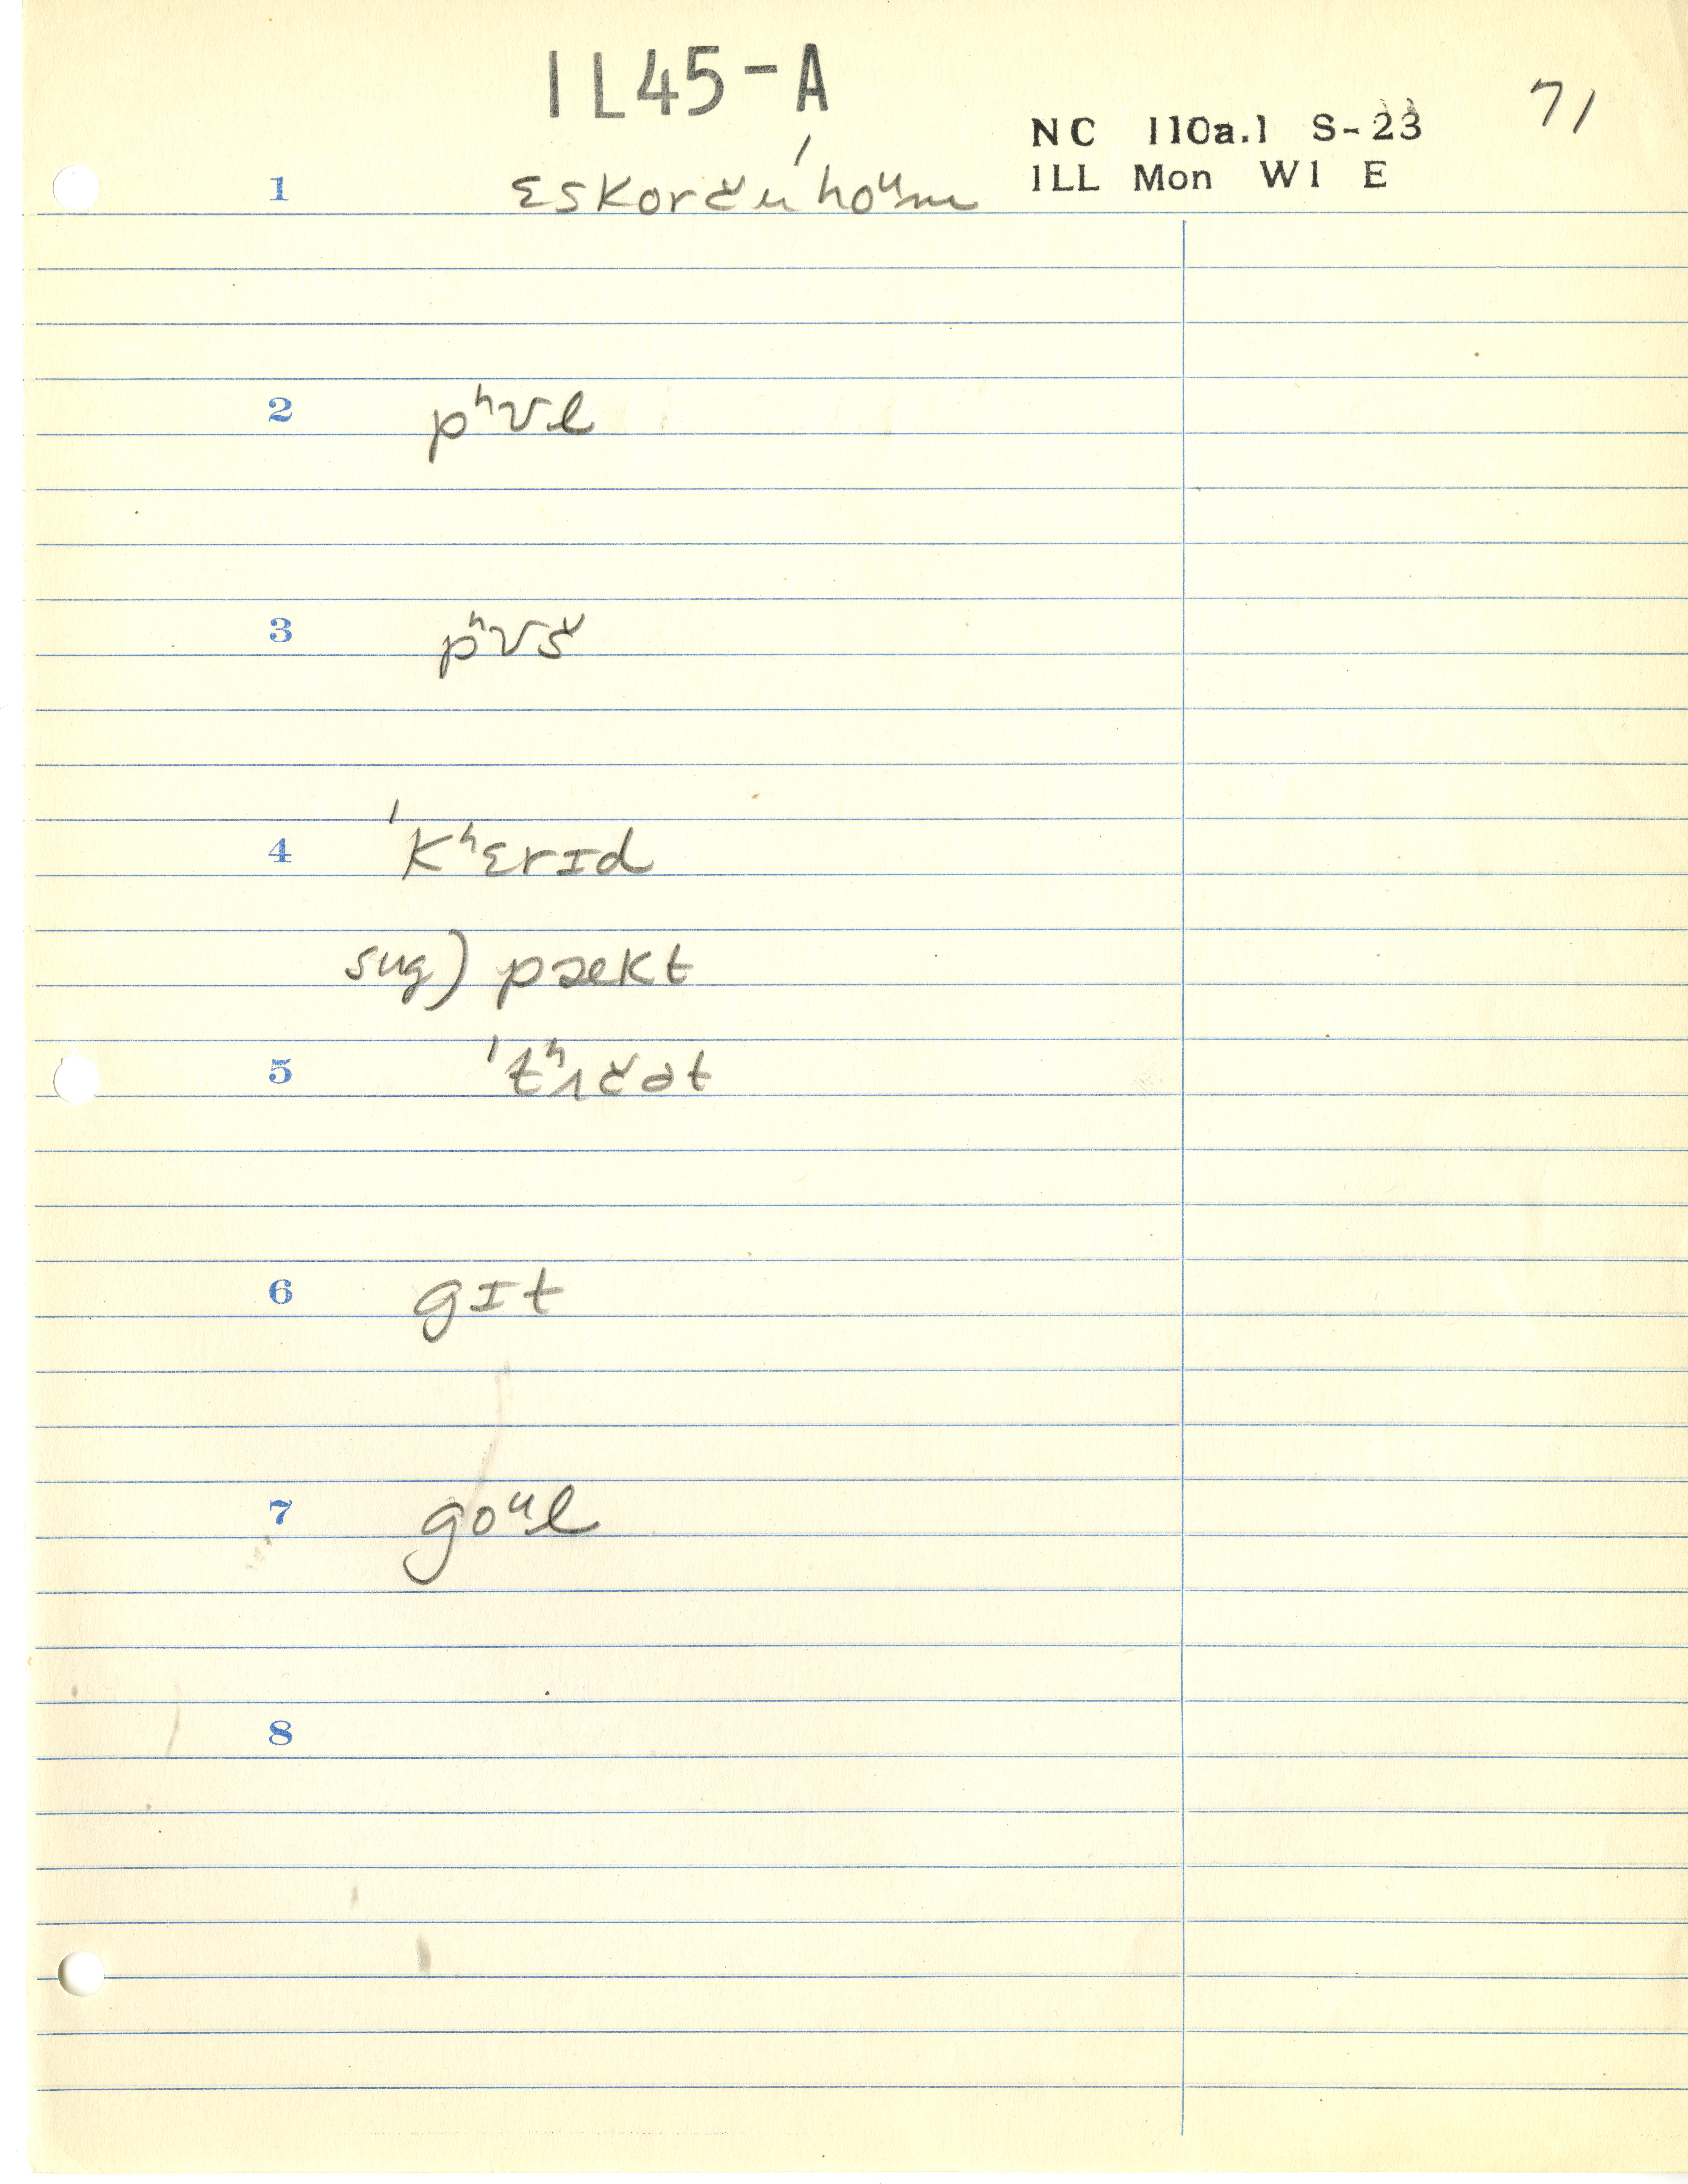 IL45-A
71
NC 110a.1 S-23
ILL Mon W1 E
1 ɛskorčuˈhoᵘm
2 pʰʊl
3 pʰʊš
4 ˈkʰɛrɪd
sug) pækt
5 ˈtʰɪčət
6 gɪt
7 goᵘl
8